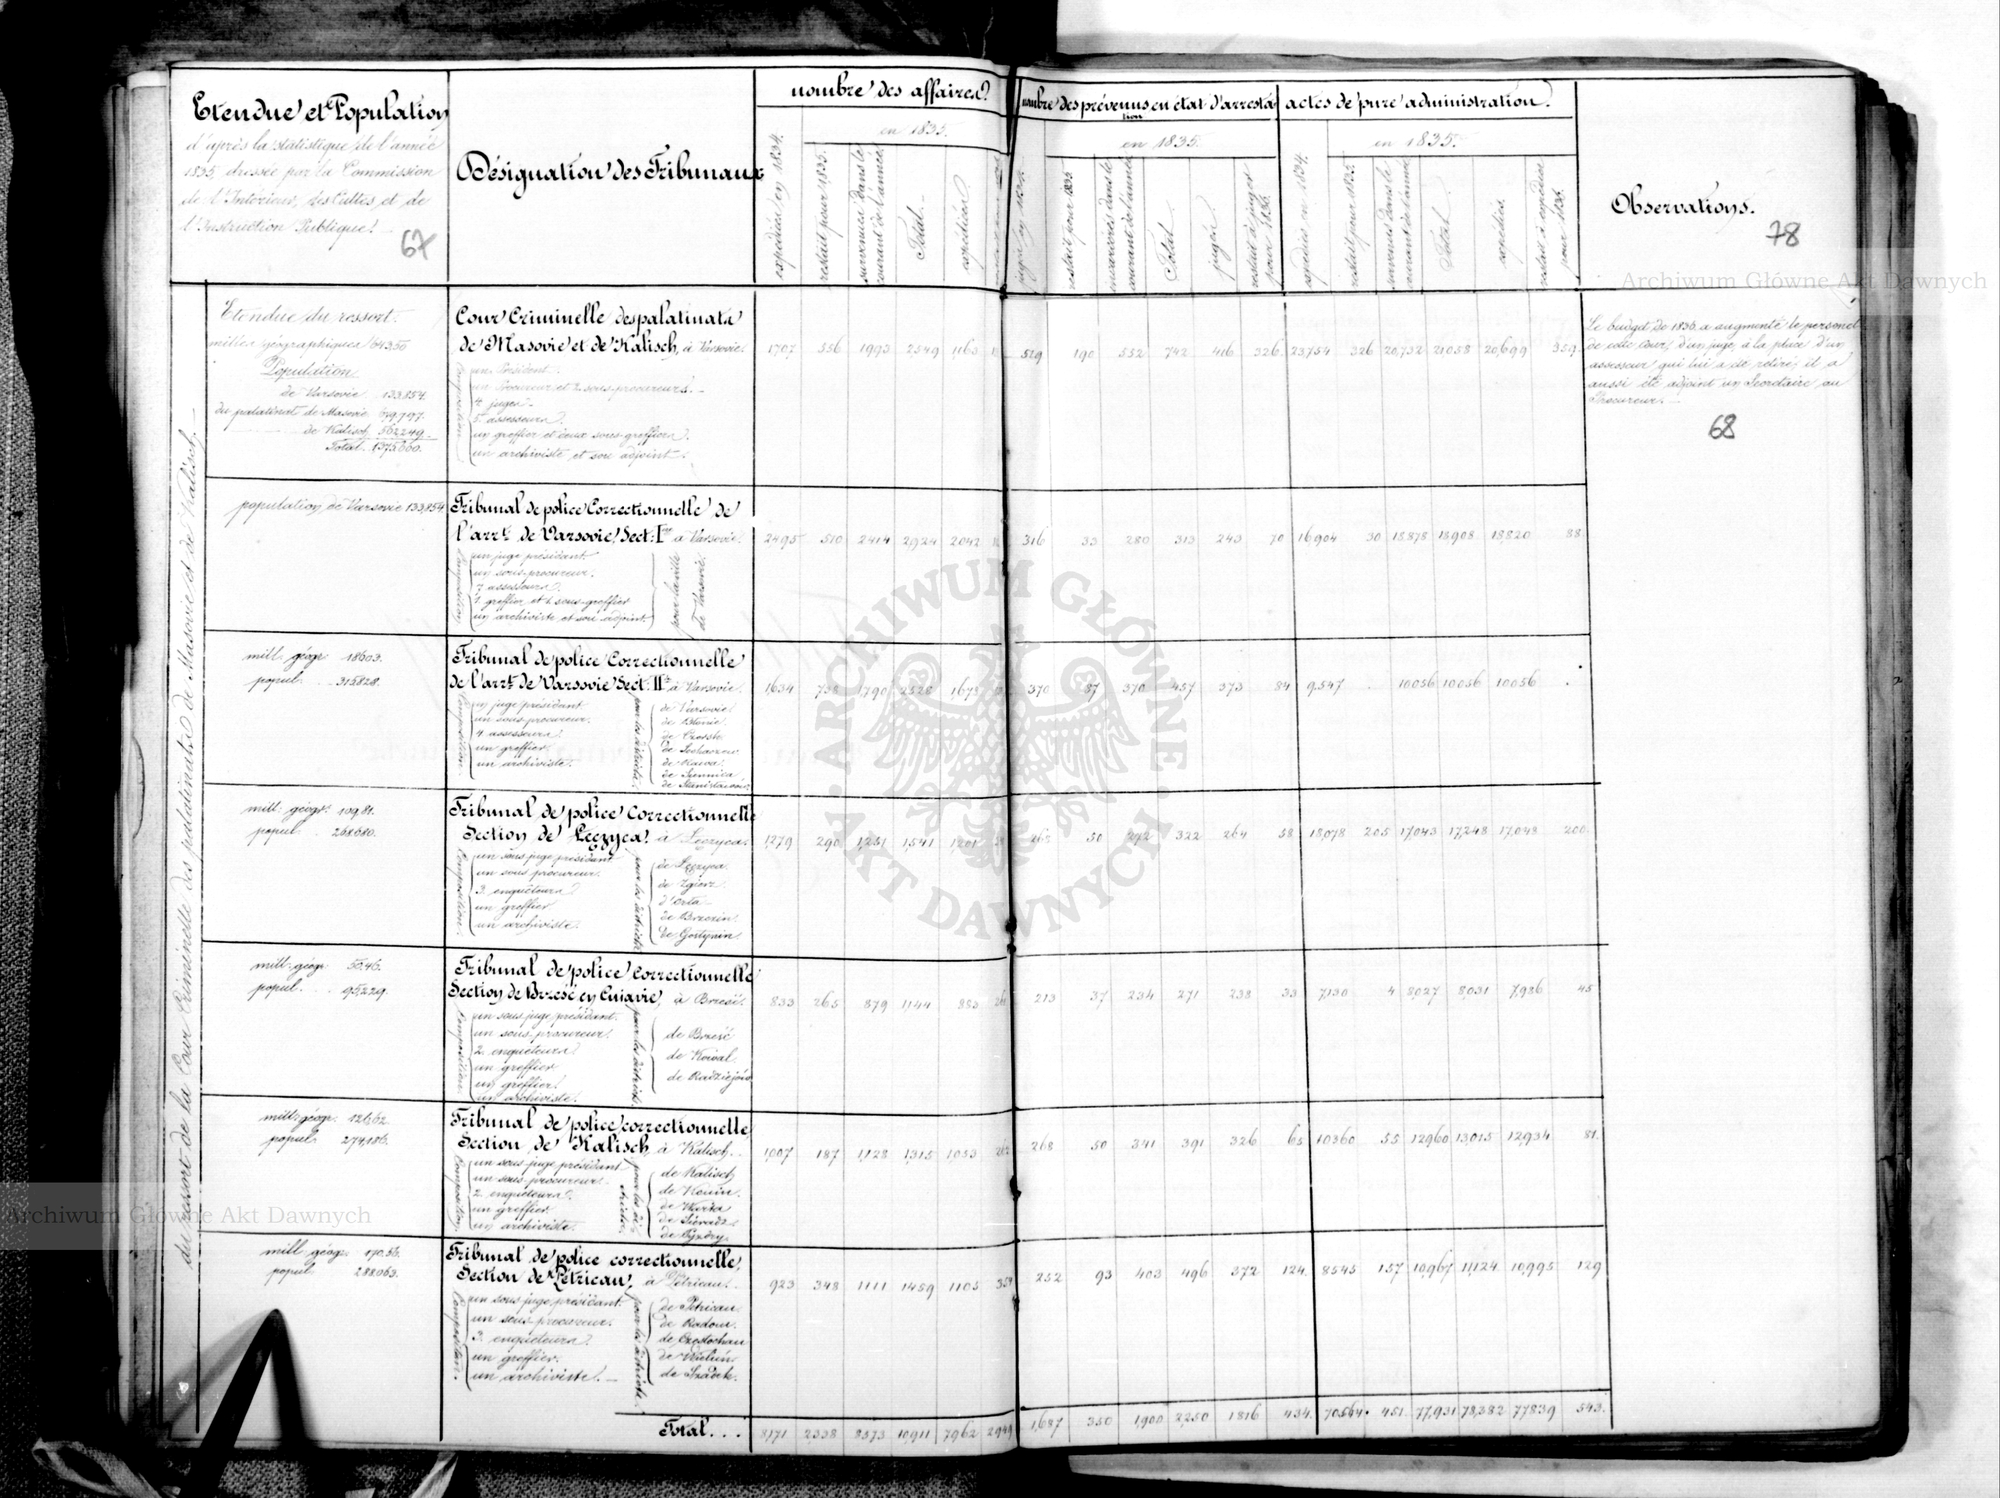 Etendue et Population
d'après la statistique de l'année
1835 dressée par la Commission
de l'Intérieur, des Cultes, et de
l'Instruction Publique.
67
Désignation des Tribunaux
nombre des affaires.
expédiées en 1834.
en 1835.
restait pour 1835.
survenues dans le courant de l'année
Total.
expédiées
nombre des prévenus en état d'arrestation
en 1835.
restait pour 1835
incarcérés dans le courant de l'année
Total
jugés
restait à juger pour 1836.
actes de pure administration.
expédiés en 1834.
en 1835.
restait pour 1835.
survenus dans le courant de l'année
Total
expédiés
restait à expédier pour 1836.
Observations.
78
Archiwum Główne Akt Dawnych
du ressort de la Cour Criminelle des palatinats de Masovie et de Kalisch.
Etendue du ressort.
milles géographiques 643,50
Population
de Varsovie 133,854.
du palatinat de Masovie 679,797.
de Kalisch 562,249.
Total 1375,000.
Cour Criminelle des palatinats
de Masovie et de Kalisch, à Varsovie.
Composition
un Président.
un Procureur et 2 sous-procureurs.
4 juges.
5 assesseurs.
un greffier et deux sous-greffiers.
un archiviste et son adjoint.
1707 556 1993 2549 1163
529 190 552 742 416 326 23,754 326 20,732 21058 20,699 359
Le budget de 1836 a augmenté le personel
de cette Cour, d'un juge, à la place d'un
assesseur qui lui a été retiré; il a
aussi été adjoint un Secrétaire au
Procureur.
68
population de Varsovie 133,854
Tribunal de police Correctionnelle de
l'arrt. de Varsovie, Sect. Ire à Varsovie.
Composition
un juge président.
un sous-procureur.
7 assesseurs.
1 greffier et 1 sous-greffier
un archiviste et son adjoint
pour la ville de Varsovie.
2495 510 2414 2,924 2042
316 33 280 313 243 70 16,904 30 18,878 18,908 18,820 88
mill. géogr. 186,03.
popul. 315,828.
Tribunal de police Correctionnelle
de l'arrt. de Varsovie Sect. IIe à Varsovie.
Composition
un juge président
un sous-procureur.
4 assesseurs.
un greffier.
un archiviste.
pour les districts
de Varsovie.
de Blonie.
de Czersk.
de Sochaczew.
de Rawa.
de Siennica.
de Stanislawow.
1634 738 1790 2528 1673
370 87 370 457 373 84 9,547 . 10056 10056 10056 .
mill. géogr. 109,81.
popul. 268,680.
Tribunal de police Correctionnelle
Section de Łęczyca, à Łęczyca.
Composition
un sous juge président.
un sous procureur.
3 enquêteurs.
un greffier
un archiviste.
pour les districts
de Łęczyca
de Zgierz
d'Orła
de Brzezin.
de Gostynin.
1,279 290 1,251 1,541 1,201
268 50 272 322 264 58 18,078 205 17,043 17,248 17,048 200.
mill. géogr. 50,46.
popul. 95,229.
Tribunal de police correctionnelle
Section de Brześć en Cujavie, à Brześć.
Composition
un sous juge président.
un sous procureur.
2 enquêteurs.
un greffier
un greffier.
un archiviste.
pour les districts
de Brześć
de Kowal.
de Radziejów
833 265 879 1,144 883
213 37 234 271 238 33 7,130 4 8,027 8,031 7,986 45
mill. géogr. 126,62.
popul. 274,186.
Tribunal de police correctionnelle,
Section de Kalisch, à Kalisch.
Composition
un sous juge président
un sous-procureur.
2 enquêteurs.
un greffier.
un archiviste.
pour les districts
de Kalisch
de Konin.
de Warta
de Sieradz.
de Pyzdry.
1,007 187 1,128 1,315 1,053 262
268 50 341 391 326 65 10360 55 12960 13,015 12,934 81.
mill. géogr. 170,56.
popul. 288,063.
Tribunal de police correctionnelle,
Section de Pétricau, à Pétricau.
Composition.
un sous juge président.
un sous-procureur.
3 enquêteurs.
un greffier.
un archiviste.
pour les districts
de Pétricau.
de Radom.
de Częstochau
de Wieluń
de Szadek.
923 348 1111 1459 1105 354
252 93 403 496 372 124. 8545 157 10,967 11,124 10,995 129
Total...
8,171 2,338 8573 10,911 7,962 2,949
1,687 350 1,900 2,250 1816 434. 70564. 451. 77,931 78,382 77839 543.
ARCHIWUM GŁÓWNE AKT DAWNYCH
Archiwum Główne Akt Dawnych